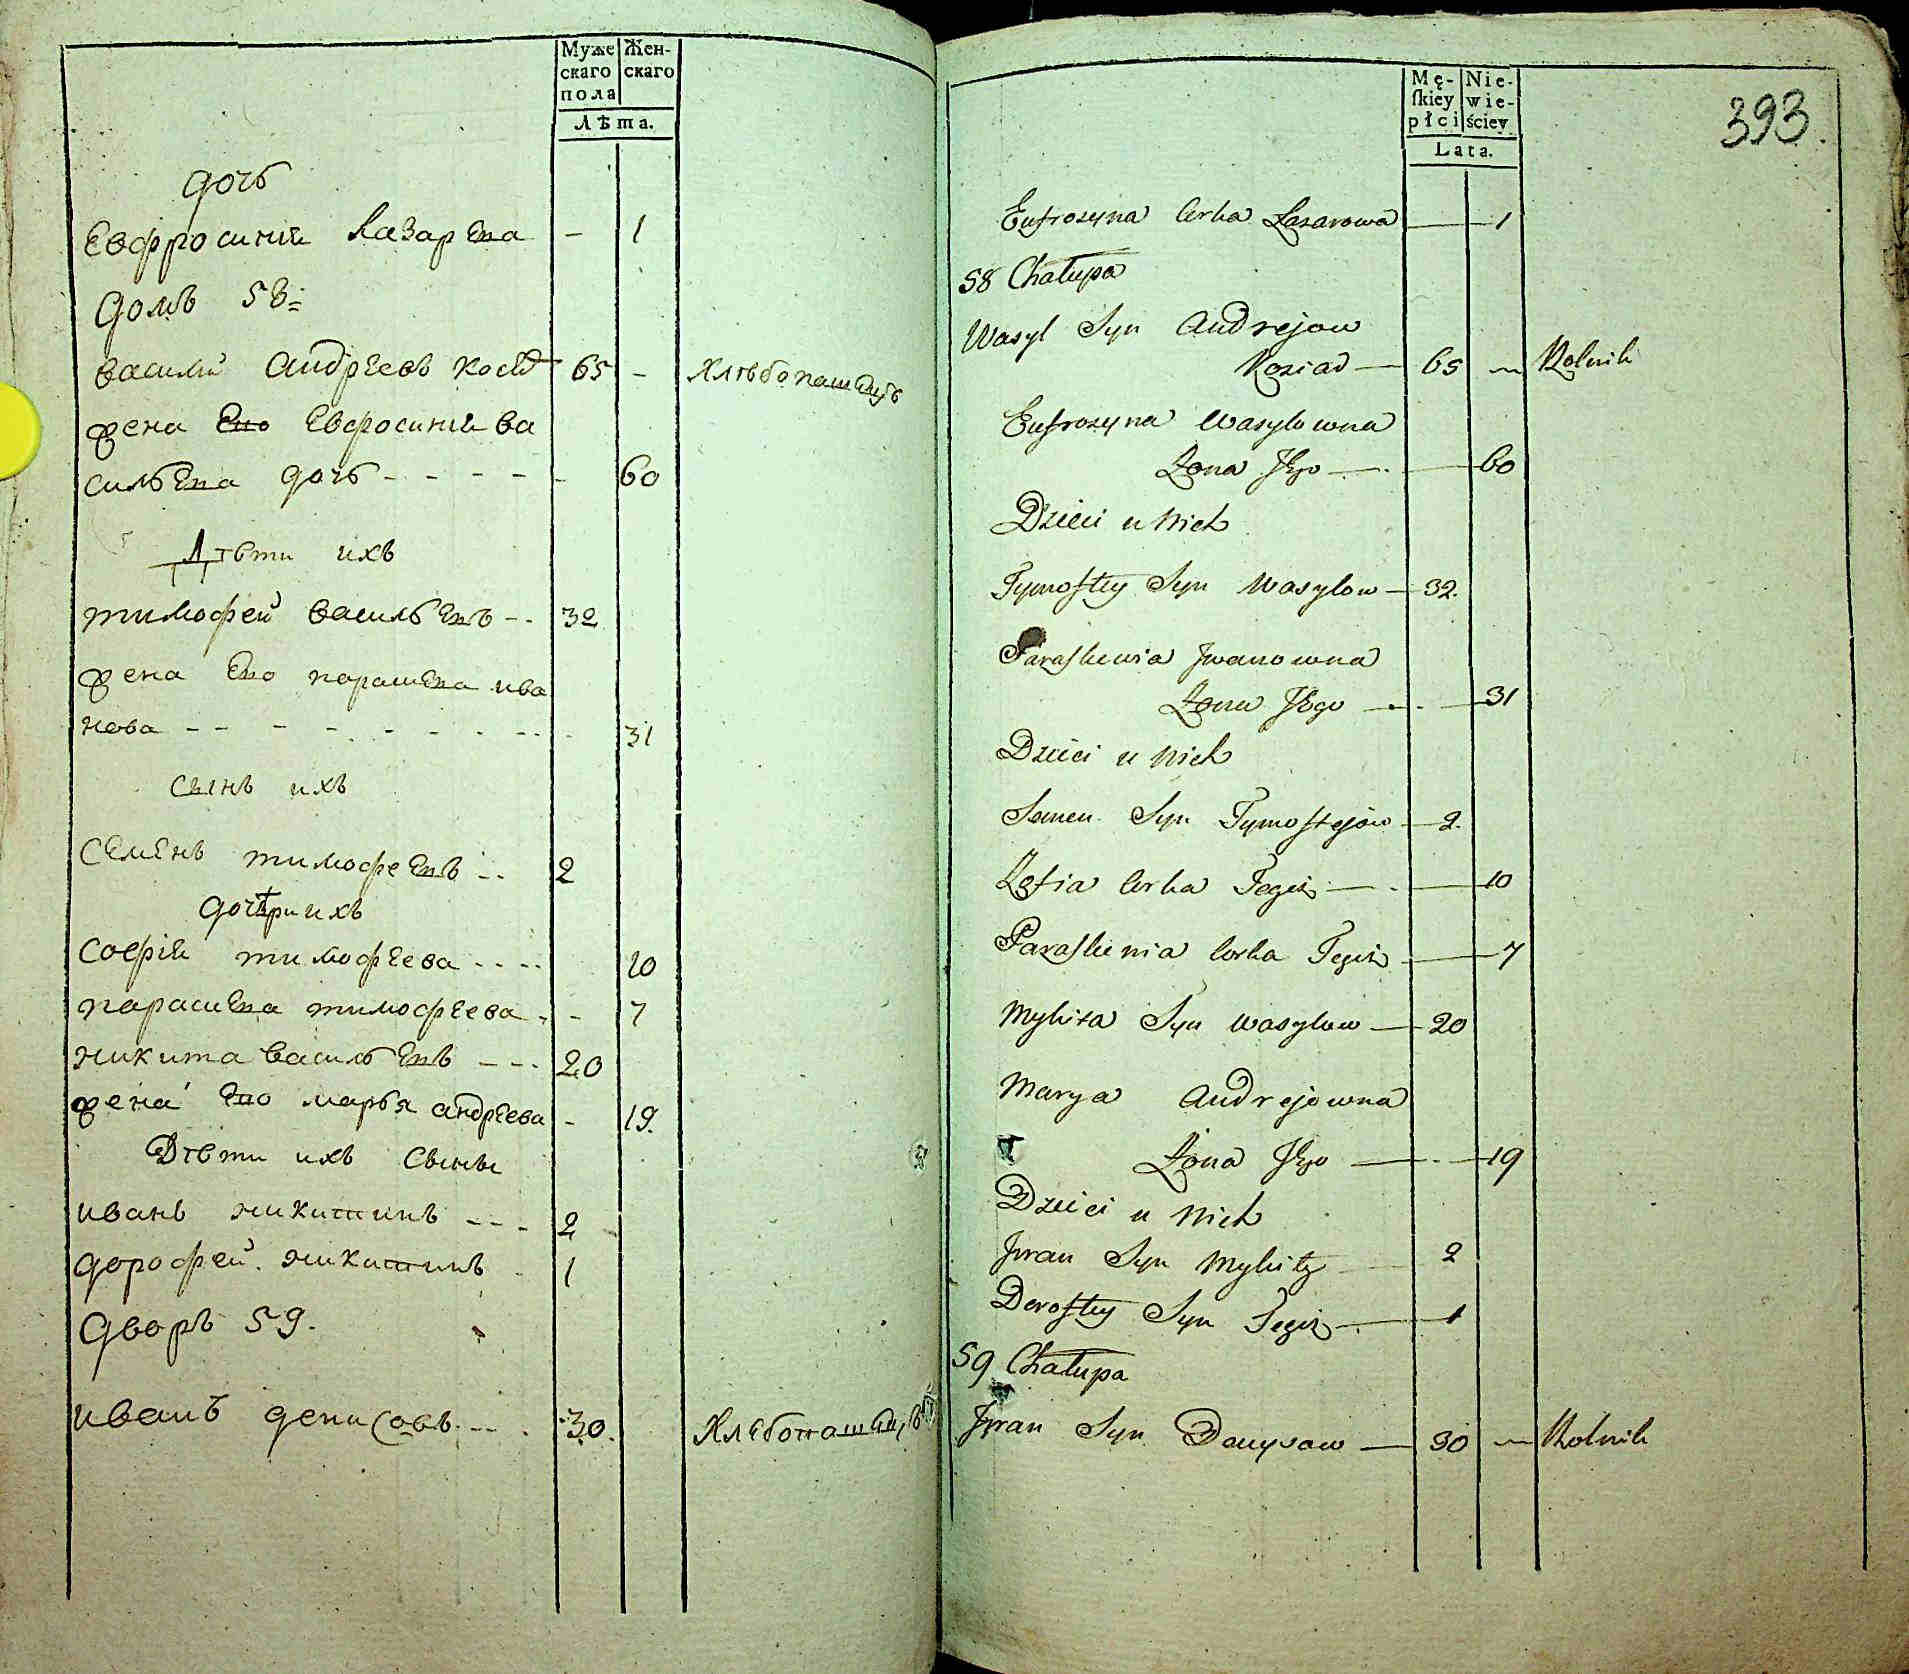 Муже Жен-
скаго скаго
пола
Лѣта.
дочь
Евфросинiя Лазарева — 1
Домъ 58:
василий Андреевъ косяд 65 - Хлѣбопашецъ
жена Ево Евфросинiя ва
сильева дочь - - - - - 60
Дѣти ихъ
тимофей васильевъ - - 32
жена Ево парасцева ива
нова - - - - - - - - 31
сынъ ихъ
Семенъ тимофеевъ - - 2
дочери ихъ
Софiя тимофеева - - - - 10
парасцева тимофеева - - 7
никита васильевъ - - - 20
жена Ево марья андреева - 19.
Дѣти ихъ сыны
иванъ никитинъ - - - 2
дорофей никитинъ - 1
дворъ 59.
иванъ денисовъ - - . 30. Хлѣбопашецъ
Mę- Nie-
ſkiey wie-
płci ściey
Lata.
393.
Eufrozyna Corka Łazarowa — 1
58 Chałupa
Wasyl Syn Andrejow
Kosiad — 65 ~ Rolnik
Eufrozyna Wasylowna
Żona Jego — . — 60
Dzieci u Nich
Tymoftey Syn Wasylow — 32.
Paraskiewia Jwanowna
Żona Jego — . — 31
Dzieci u Nich
Semen Syn Tymoftejow — 2.
Zofia Corka Tegoż — . — 10
Paraskiewia Corka Tegoż — 7
Mykita Syn Wasylow — 20
Marya Andrejowna
Żona Jego — . — 19
Dzieci u Nich
Jwan Syn Mykity — 2
Doroftey Syn Tegoż — . 1
59 Chałupa
Jwan Syn Denysow — 30 ~ Rolnik